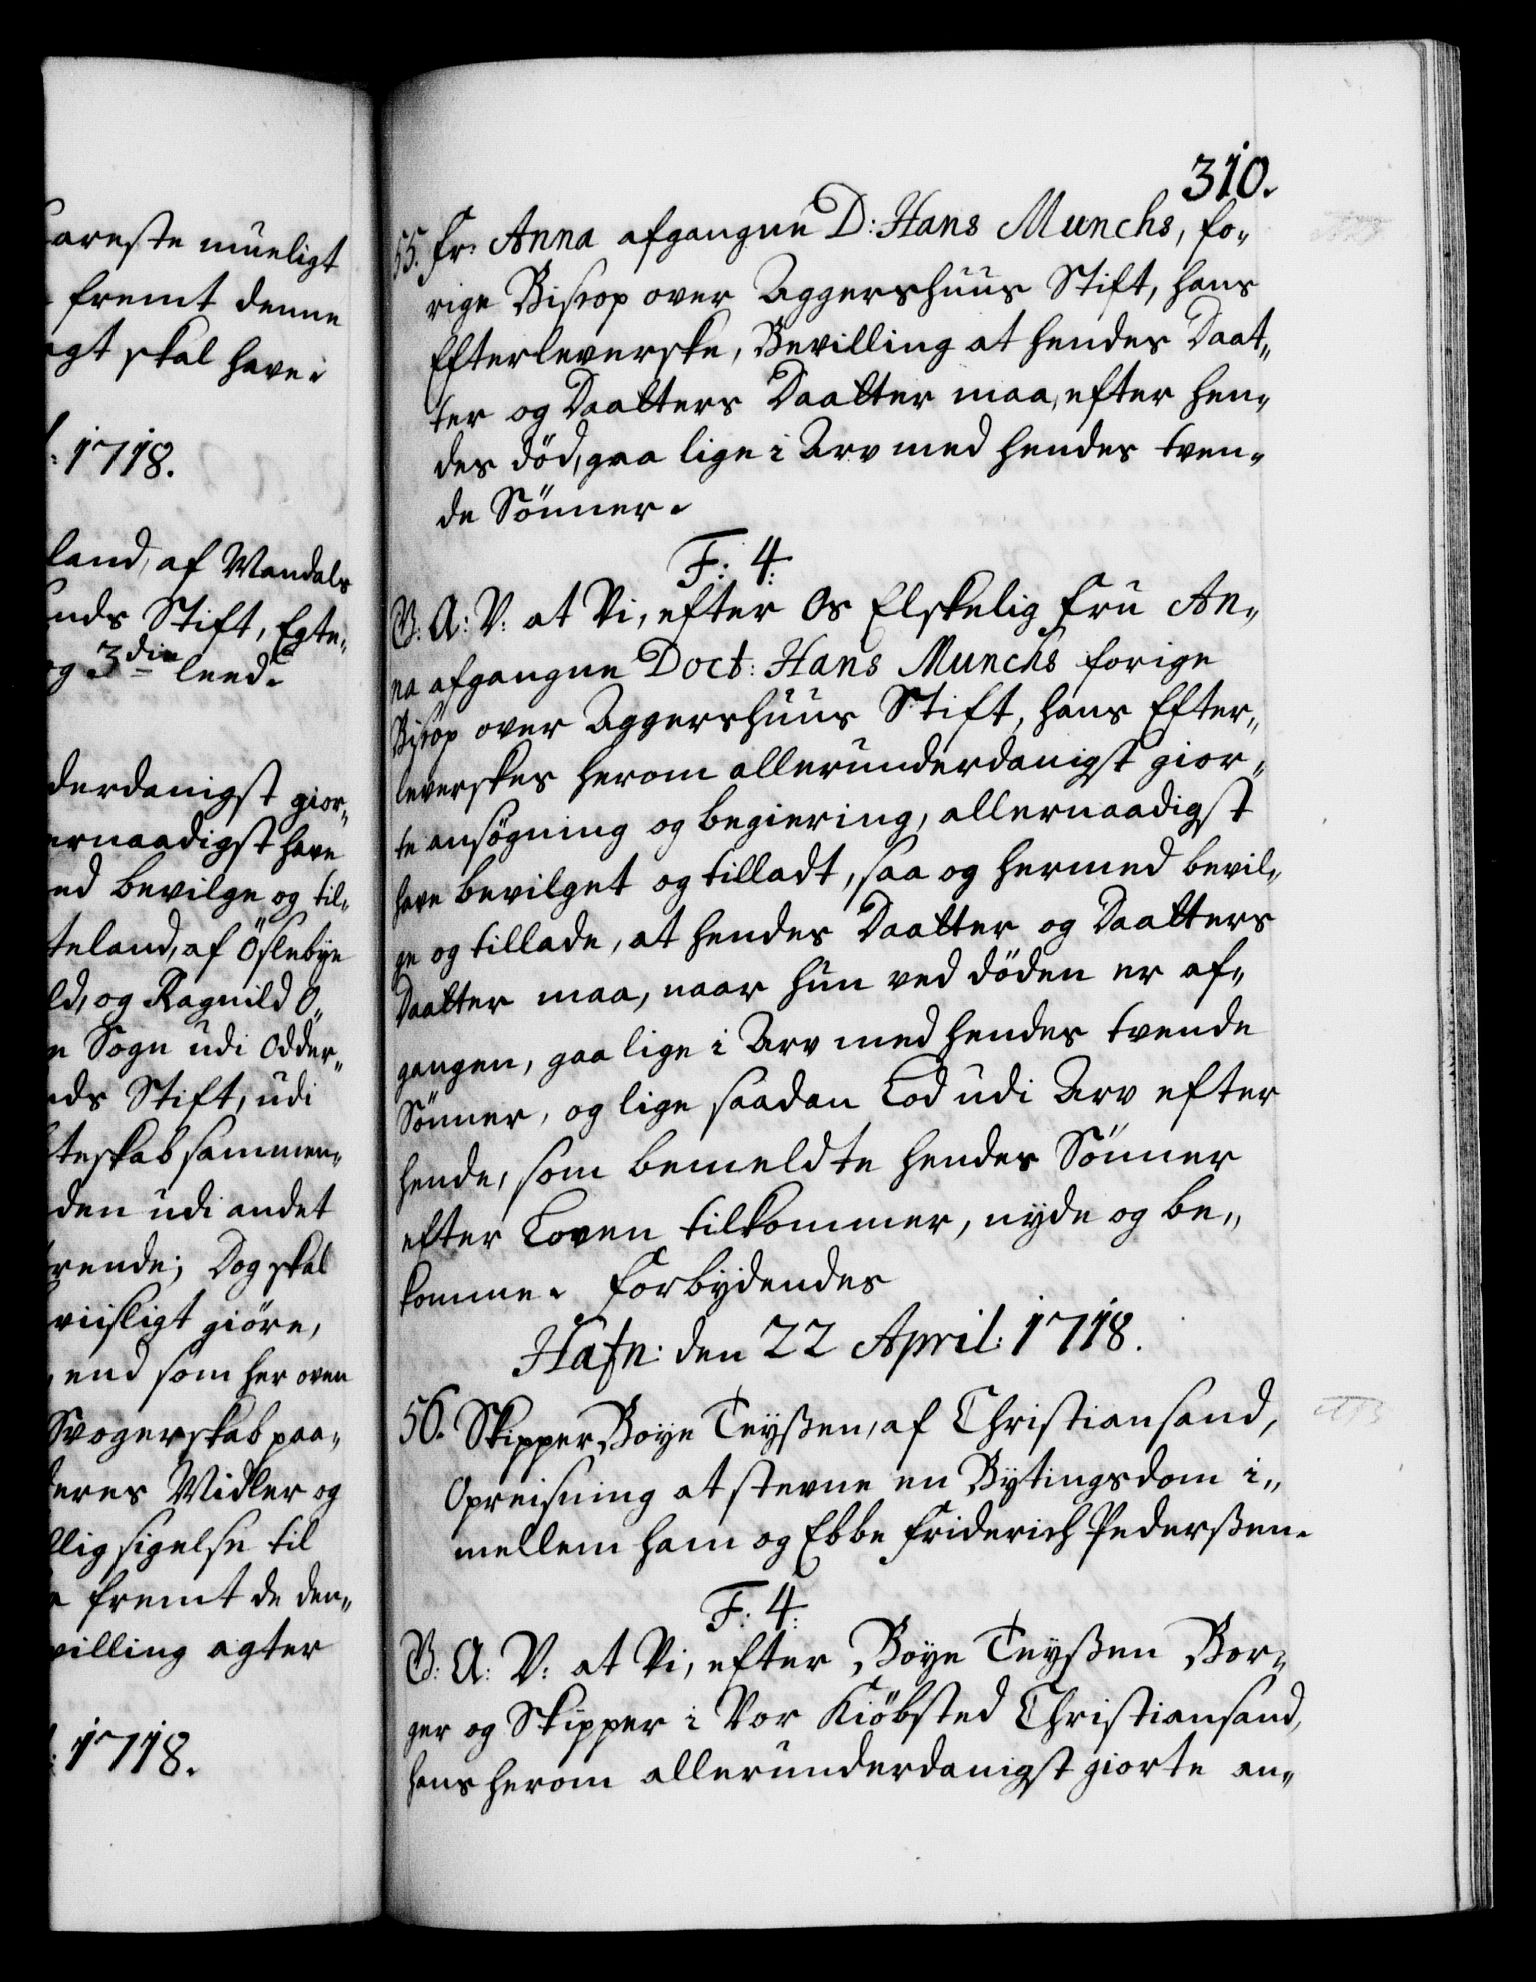 areste mueligt
fremt denne
gt skal have.
: 1718.
land, af Wandals
nds Stift, Egte„
og 3die leed.
derdanigst gior„
ernaadigst have
ed bevilge og til„
teland, af Öslebye
ld, og Ragnild O„
e Sogn udi Odder„
ds Stift, udi
teskab sammen„
den udi andet
rende; Dog skal
viisligt giöre,
, end som her oven
Svogerskab paa„
deres Midler og
llig sigelse til
fremt de den„
villing agter
: 1718.
310.
55. Fr: Anna afgangne D: Hans Munchs, fo„
rige Biskop over Aggershuus Stift, hans
Efterleverske, Bevilling at hendes Daat„
ter og Daatters Daatter maa, efter hen„
des död, gaa lige i Arv med hendes tven„
de Sönner.
F: 4:
G: A: V: at Vi, efter Os Elskelig Fru An„
na afgangne Doct: Hans Munchs forige
Biskop over Aggershuus Stift, hans Efter„
leverskes herom allerunderdanigst gior„
te ansögning og begiering, allernaadigst
have bevilget og tilladt, saa og hermed bevil„
ge og tillade, at hendes Daatter og Daatters
Daatter maa, naar hun ved döden er af„
gangen, gaa lige i Arv med hendes tvende
Sönner, og lige saadan Lod udi Arv efter
hende, som bemeldte hendes Sönner
efter Loven tilkommer, nyde og be„
komme. Forbydendes
Hafn: den 22 April: 1718.
56. Skipper Boye Teyßen, af Christiansand,
Opreisning at stevne en Bytingsdom i„
mellem ham og Ebbe Friderich Pederßen.
F: 4:
G: A: V: at Vi, efter Boye Teyßen Bor„
ger og Skipper i Vor Kiöbsted Christiansand,
hans herom allerunderdanigst giorte an„